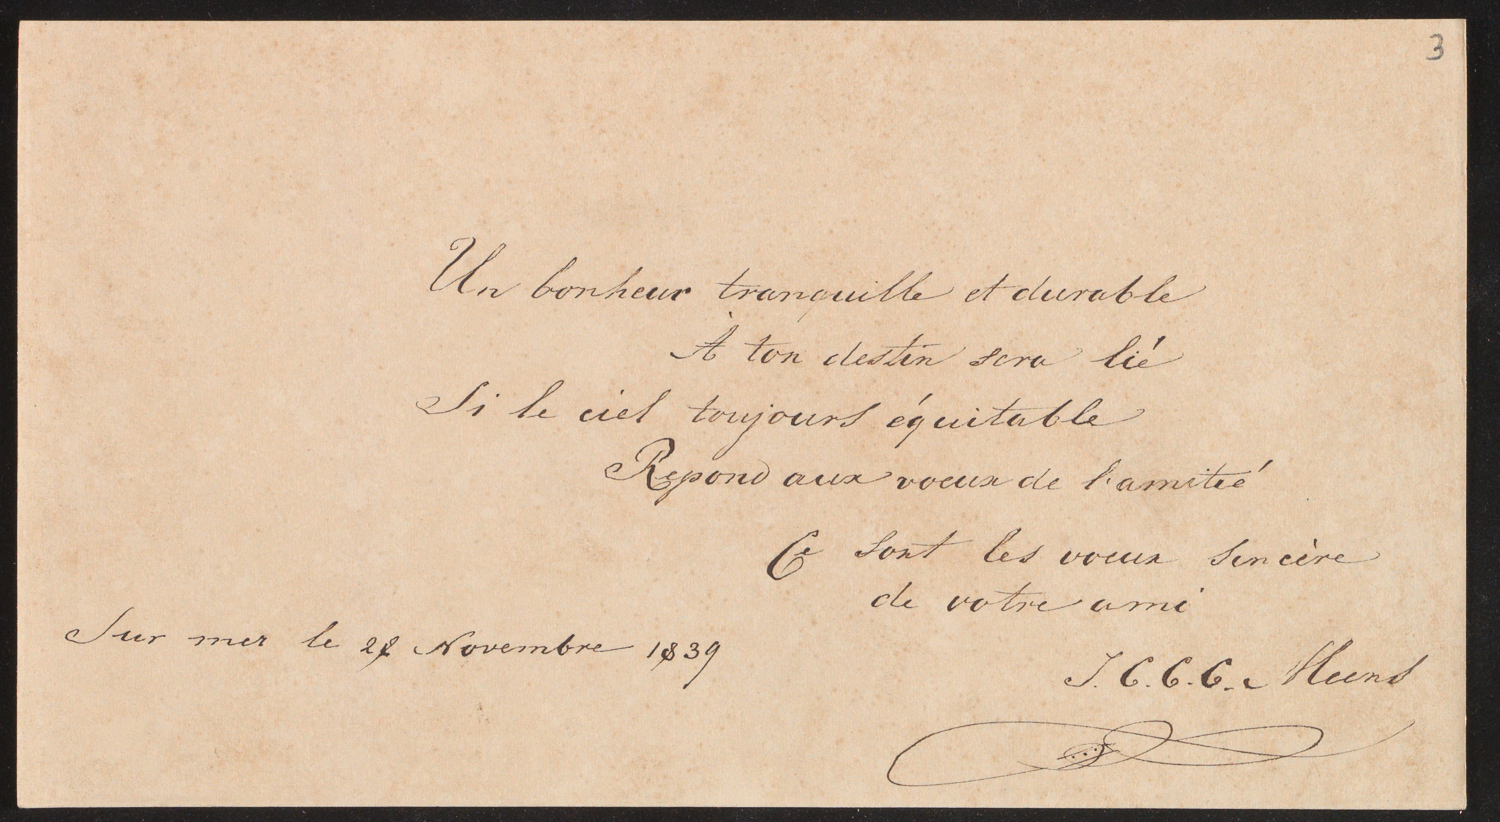 3
Un bonheur tranquille et durable
À ton destin sera lié
Si le ciel toujours équitable
Repond aux voeux de l'amitié
Ce sont les voeux sincère
de votre ami
Sur mer le 28 Novembre 1839
J. C. C. C. Meens